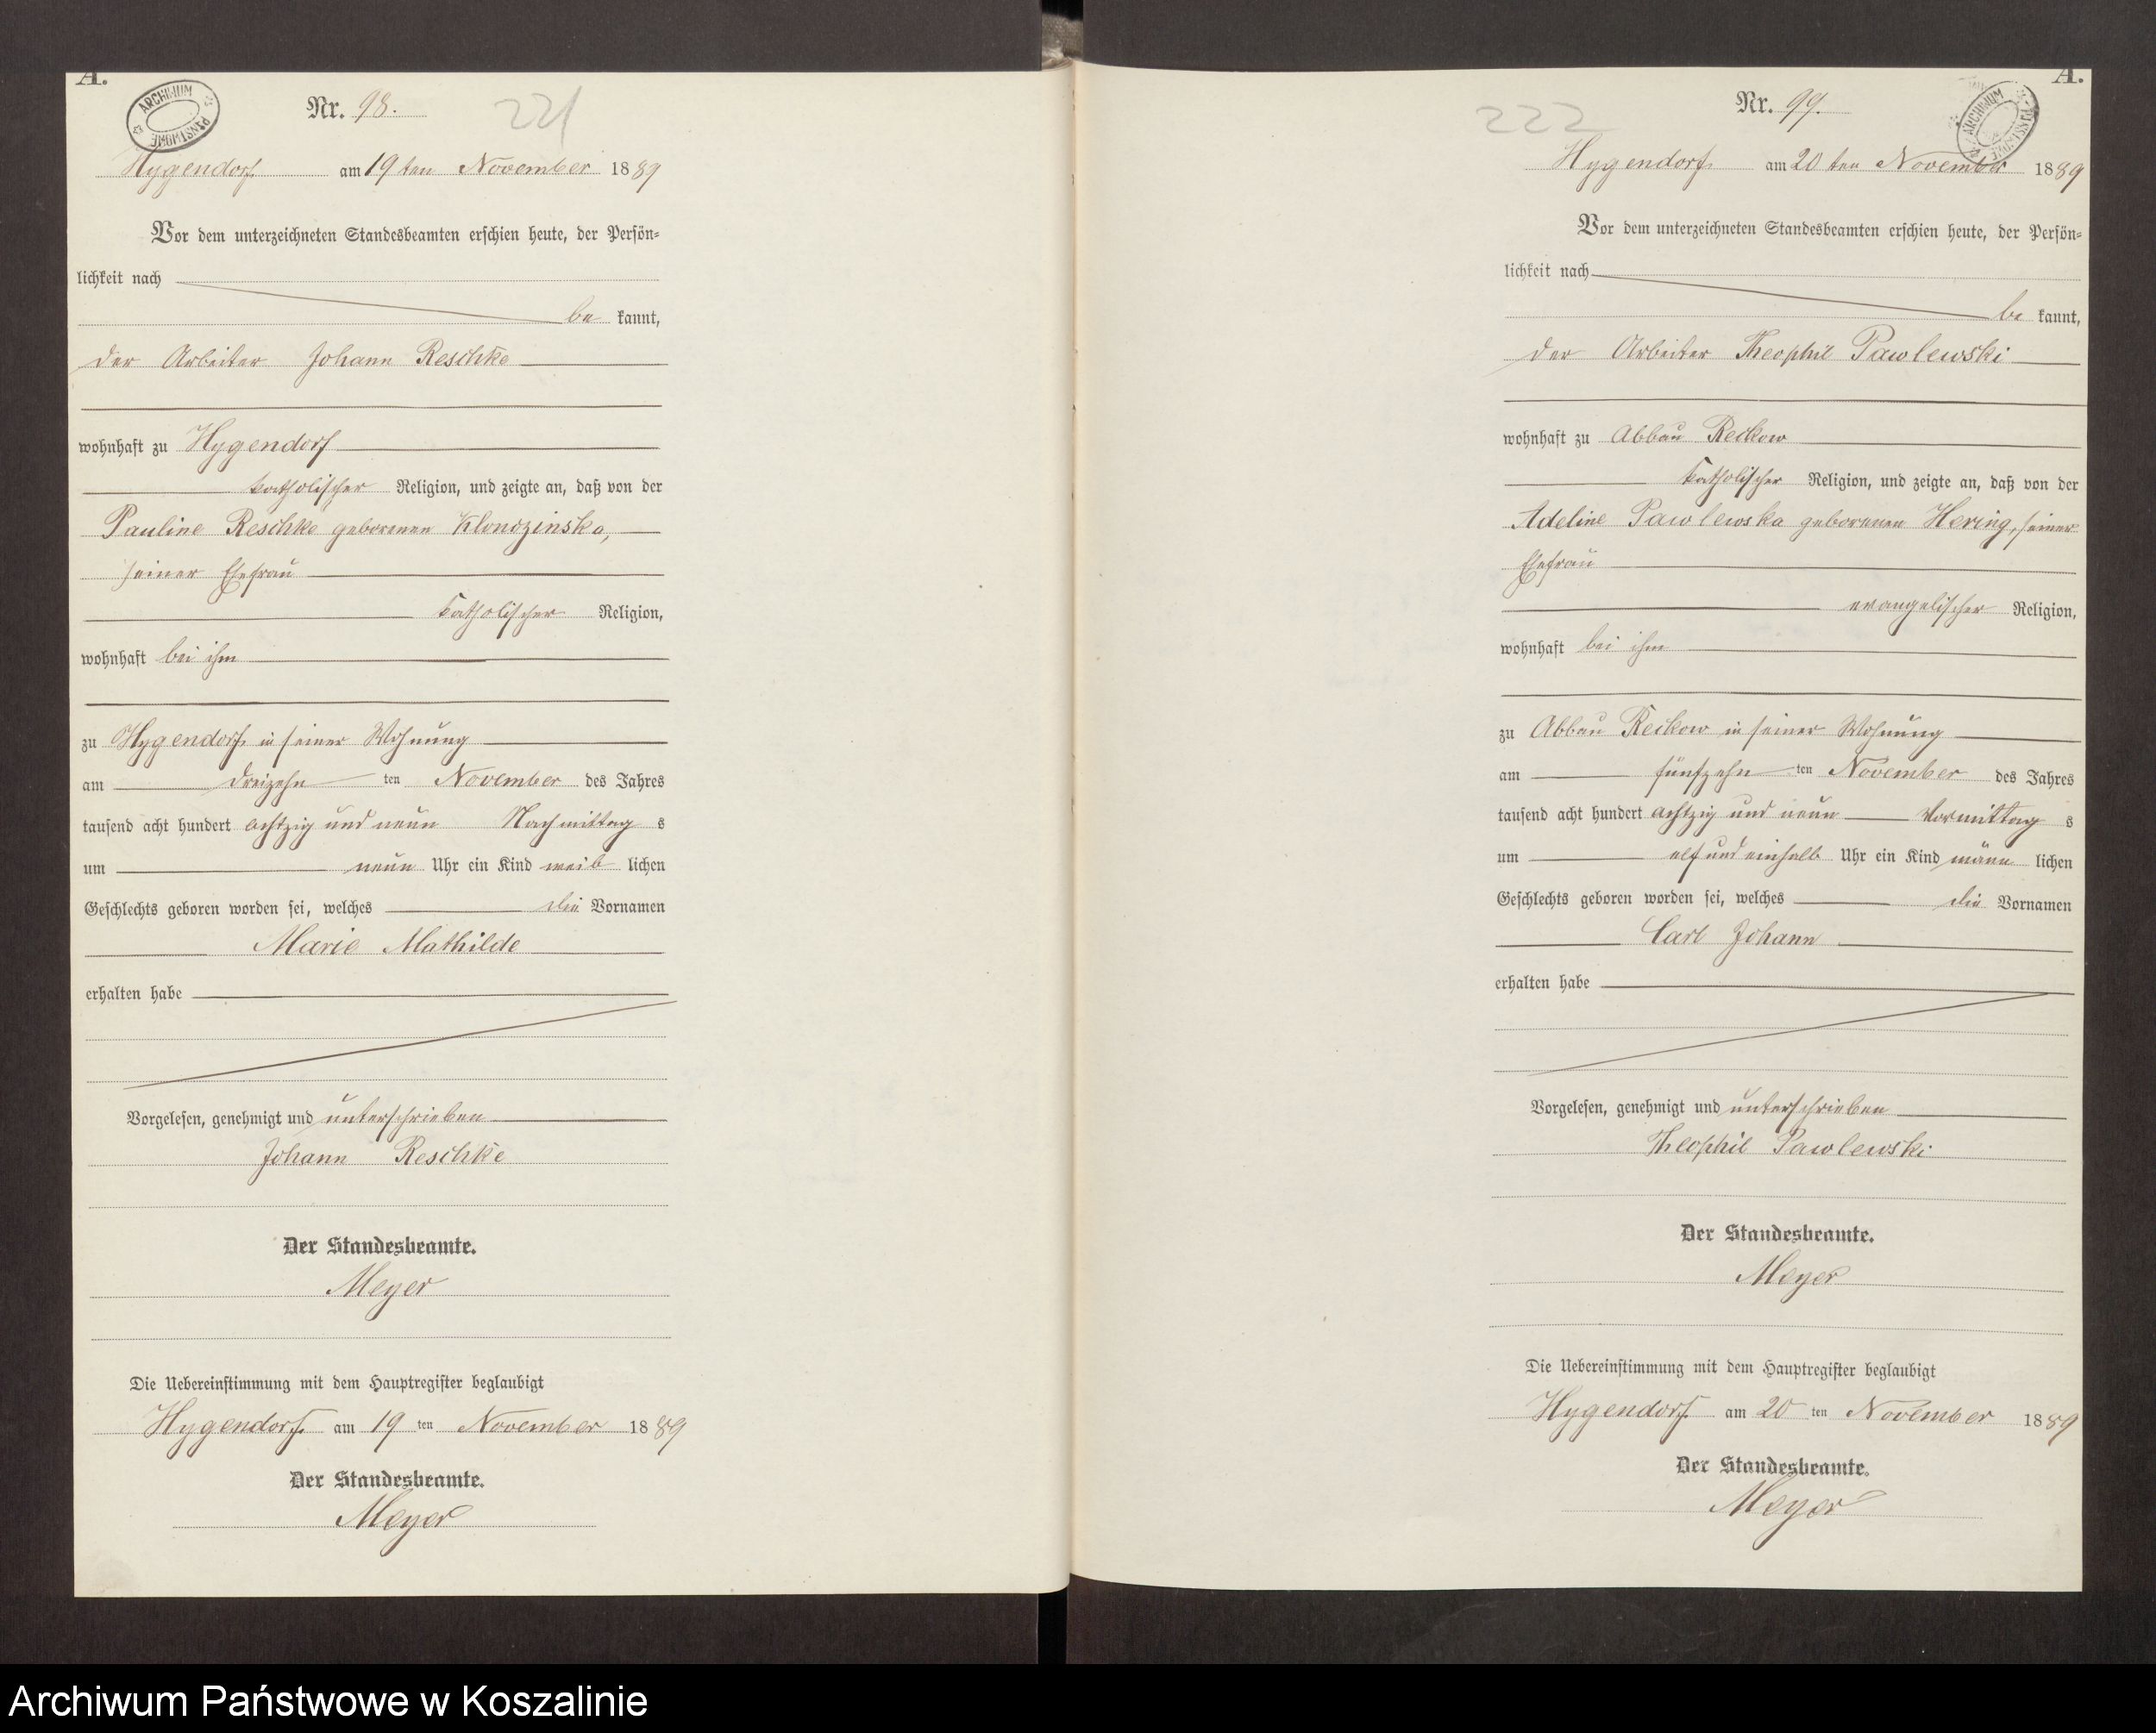 A.
ARCHIWUM PAŃSTWOWE
Nr. 98.
221
Hygendorf am 19 ten November 1889
Vor dem unterzeichneten Standesbeamten erschien heute, der Persön-
lichkeit nach
be kannt,
der Arbeiter Johann Reschke
wohnhaft zu Hygendorf
katholischer Religion, und zeigte an, daß von der
Pauline Reschke geborenen Klonszinska,
seiner Ehefrau
katholischer Religion,
wohnhaft bei ihm
zu Hygendorf in seiner Wohnung
am dreizehn ten November des Jahres
tausend acht hundert achtzig und neun Nachmittag s
um neun Uhr ein Kind weib lichen
Geschlechts geboren worden sei, welches die Vornamen
Marie Mathilde
erhalten habe
Vorgelesen, genehmigt und unterschrieben
Johann Reschke
Der Standesbeamte.
Meyer
Die Uebereinstimmung mit dem Hauptregister beglaubigt
Hygendorf am 19 ten November 1889
Der Standesbeamte.
Meyer
A.
ARCHIWUM PAŃSTWOWE
Nr. 99.
222
Hygendorf am 20 ten November 1889
Vor dem unterzeichneten Standesbeamten erschien heute, der Persön-
lichkeit nach
be kannt,
der Arbeiter Theophil Pawlewski
wohnhaft zu Abbau Reckow
katholischer Religion, und zeigte an, daß von der
Adeline Pawlewska geborenen Hering, seiner
Ehefrau
evangelischer Religion,
wohnhaft bei ihm
zu Abbau Reckow in seiner Wohnung
am fünfzehn ten November des Jahres
tausend acht hundert achtzig und neun Vormittag s
um elf und einhalb Uhr ein Kind männ lichen
Geschlechts geboren worden sei, welches die Vornamen
Carl Johann
erhalten habe
Vorgelesen, genehmigt und unterschrieben
Theophil Pawlewski
Der Standesbeamte.
Meyer
Die Uebereinstimmung mit dem Hauptregister beglaubigt
Hygendorf am 20 ten November 1889
Der Standesbeamte.
Meyer
Archiwum Państwowe w Koszalinie